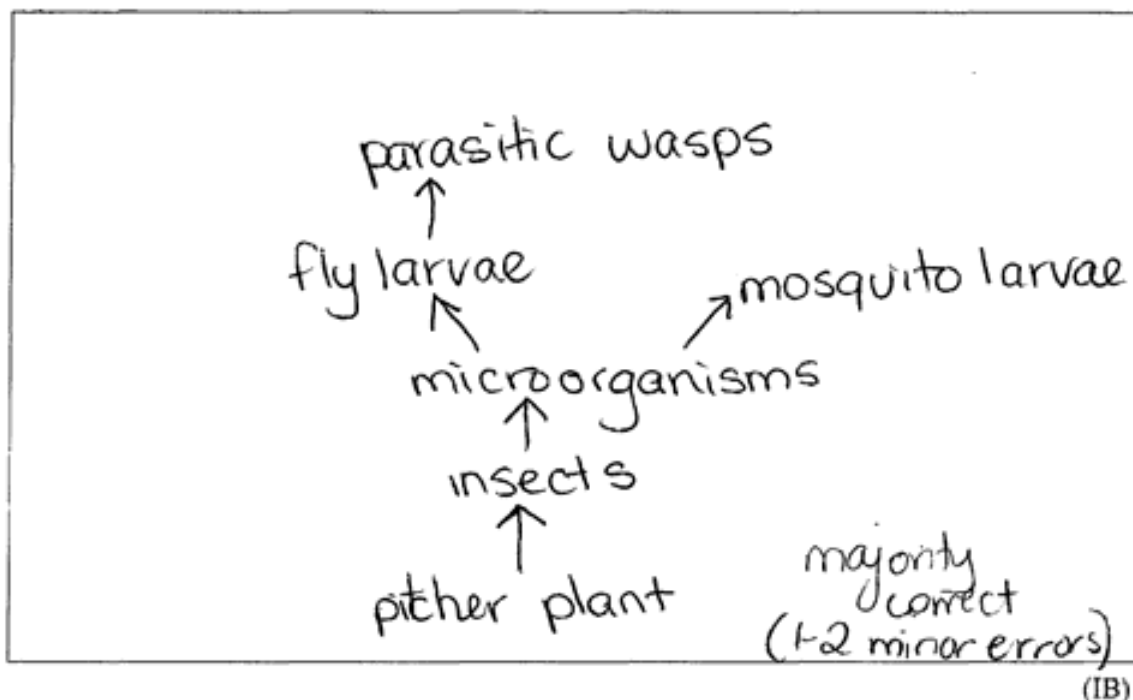 parasitic wasps
fly larvae
mosquito larvae
microorganisms
insects
pitcher plant
majority
correct
(1-2 minor errors)
(IB)